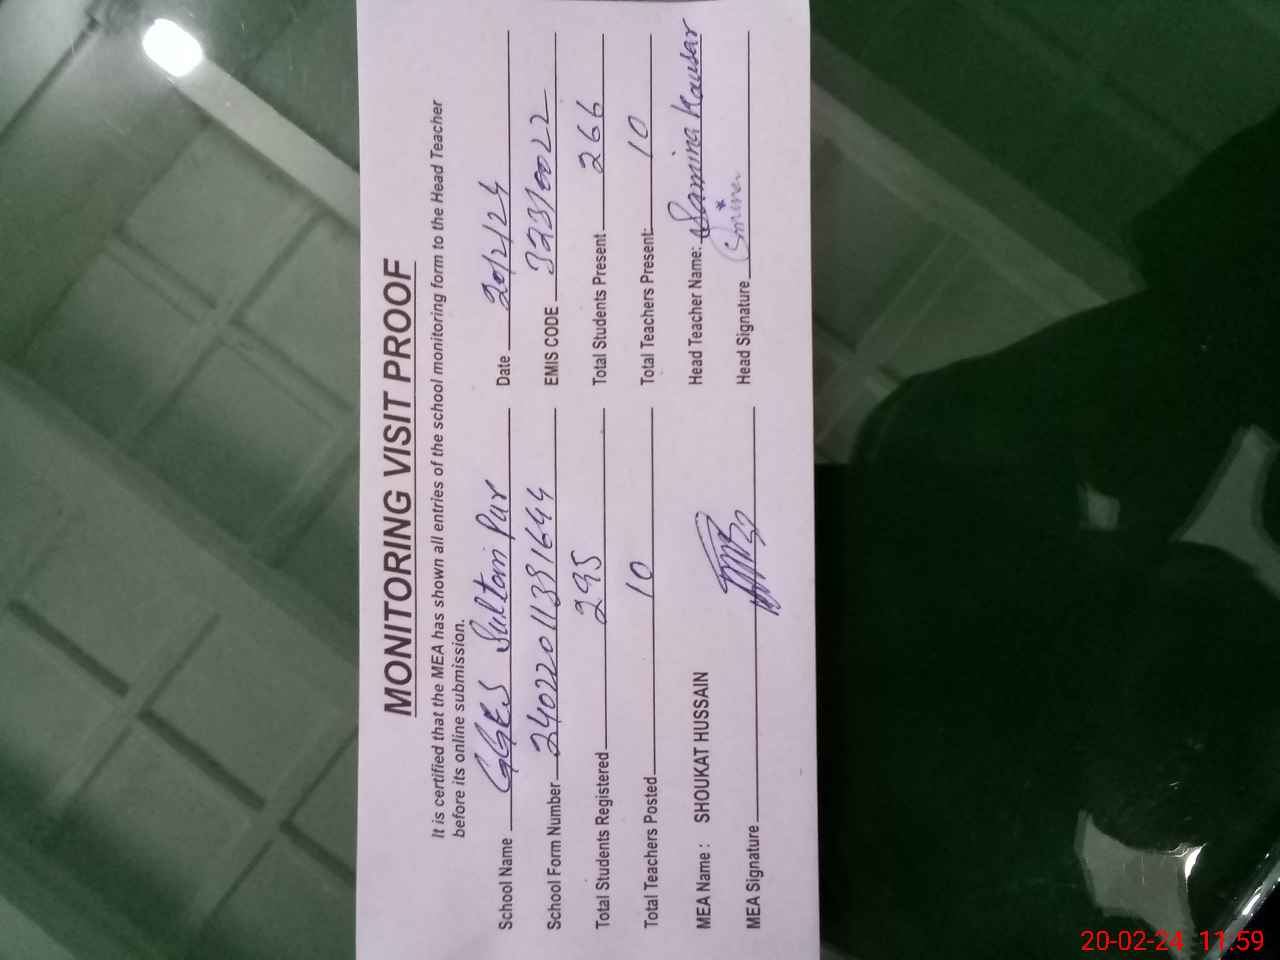 MONITORING VISIT PROOF
It is certified that the MEA has shown all entries of the school monitoring form to the Head Teacher
before its online submission.
School Name GGES Sultan Pur Date 20/2/24
School Form Number 24022011391644 EMIS CODE 32310022
Total Students Registered 295 Total Students Present 266
Total Teachers Posted 10 Total Teachers Present: 10
MEA Name : SHOUKAT HUSSAIN Head Teacher Name: Samina Kausar
MEA Signature Head Signature
20-02-24 11:59